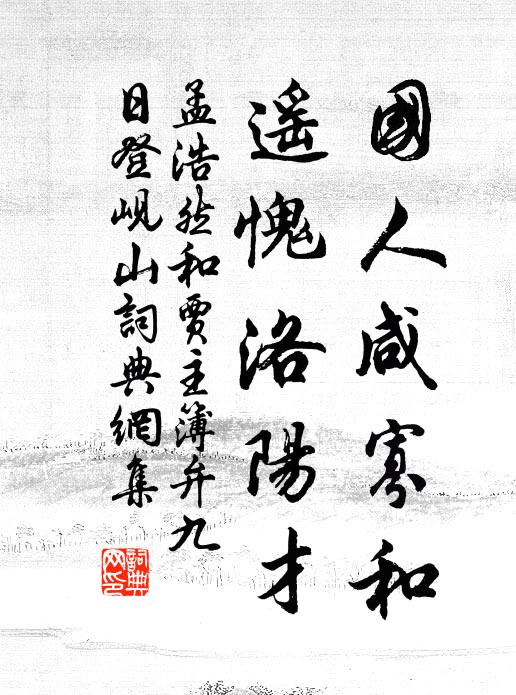 國人咸寡和
遥愧洛陽才
孟浩然和賈主簿弁九
日登峴山詞典網集
詞典
网印